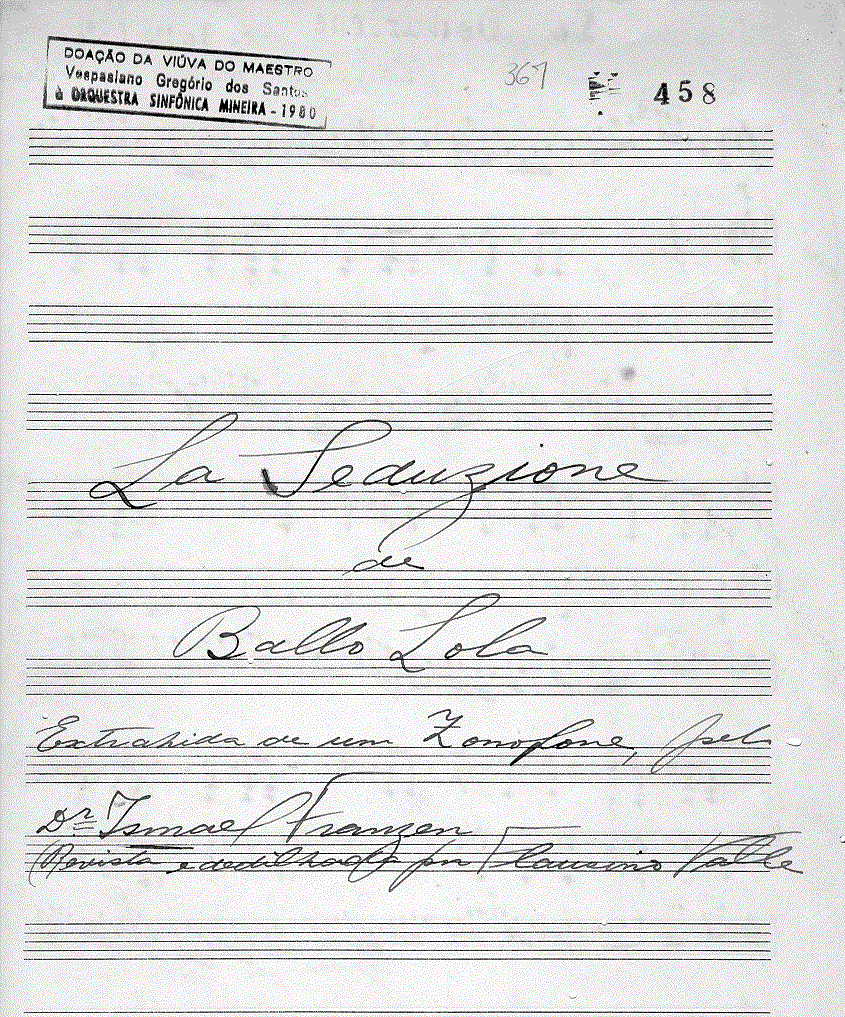 DOAÇÃO DA VIÚVA DO MAESTRO
Vespasiano Gregório dos Santos
à ORQUESTRA SINFÔNICA MINEIRA - 1980
367
458
La Seduzione
de
Ballo Lola
Extrahida de um Zonofone, pelo
Dr. Ismael Franzen
(Revista e dedilhada por Flausino Valle